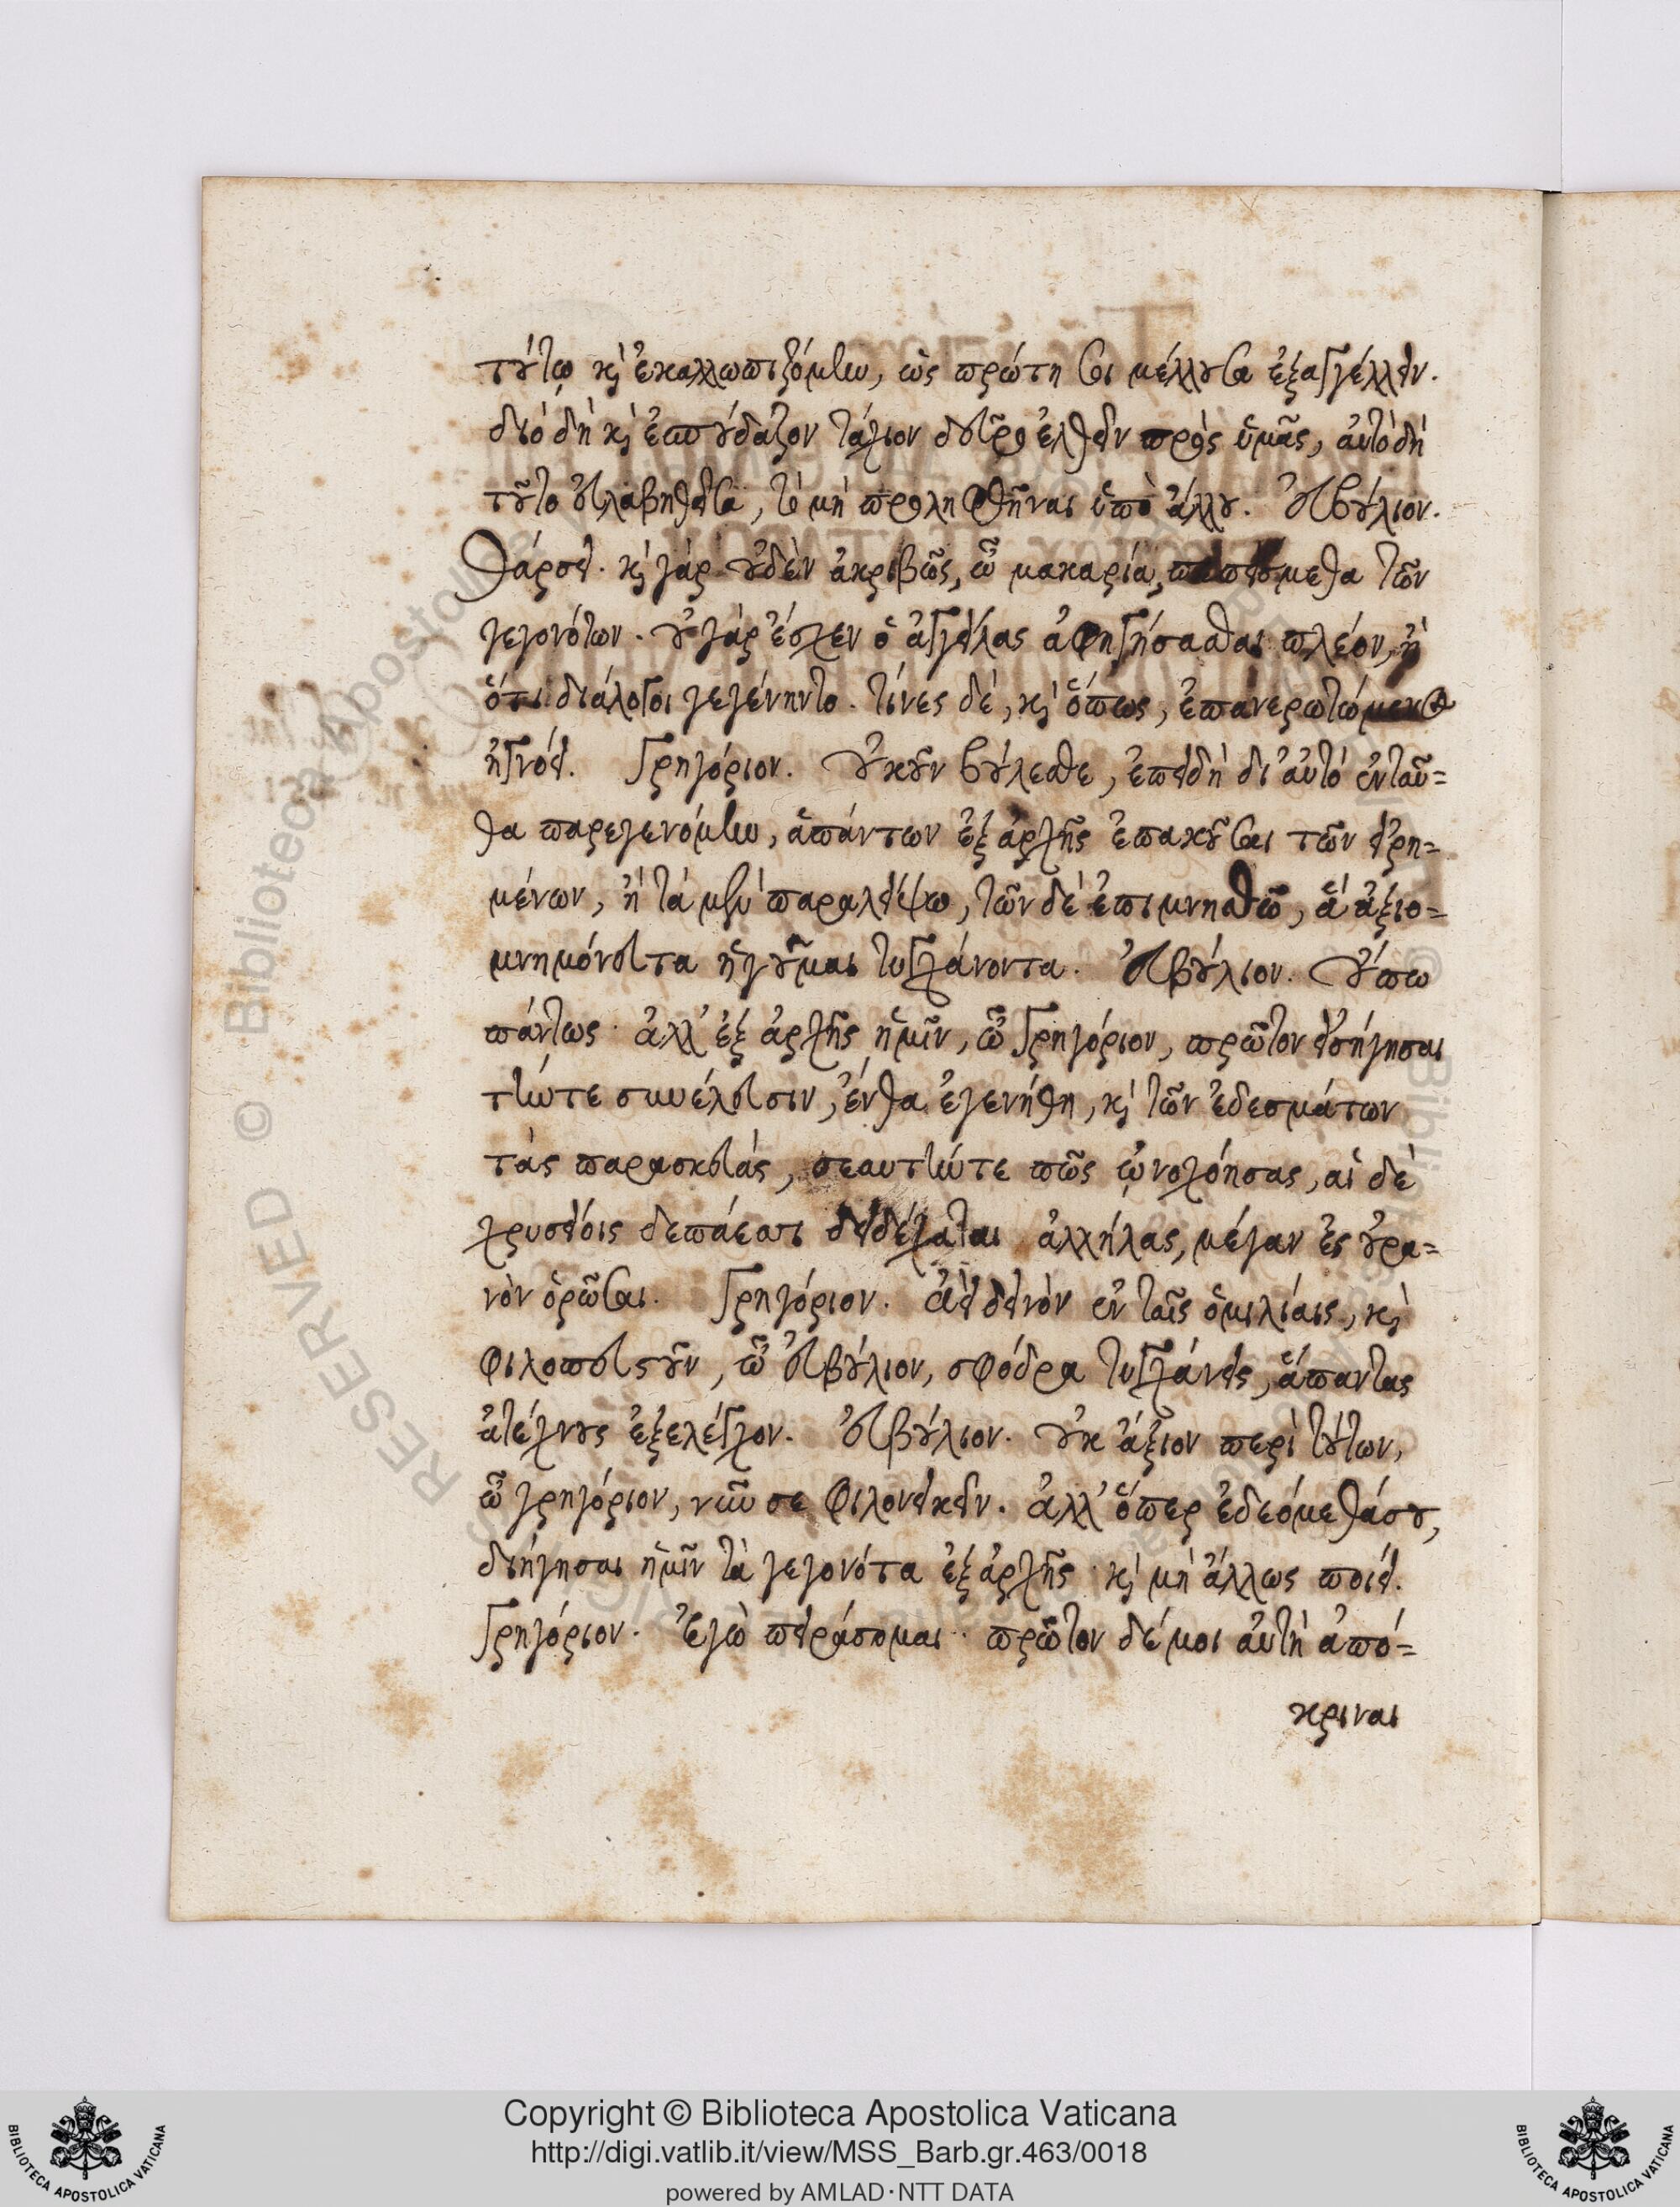 τούτῳ καὶ ἐκαλλωπιζόμην, ὡς πρώτη σοι μέλλουσα ἐξαγγέλλειν.
διὸ δὴ καὶ ἐσπούδαζον τάχιον δεῦρο ἐλθεῖν πρὸς ὑμᾶς, αὐτὸ δὴ
τοῦτο εὐλαβηθεῖσα, τὸ μὴ προληφθῆναι ὑπὸ ἄλλου. Εὐβούλιον.
Θάρσει. καὶ γὰρ οὐδὲν ἀκριβῶς, ὦ μακαρία, πεπείσμεθα τῶν
γεγονότων. οὐ γὰρ ἔσχεν ὁ ἀγγείλας ἀφηγήσασθαι πλέον, ἢ
ὅτι διάλογοι γεγένηντο. τίνες δὲ, καὶ ὅπως, ἐπανερωτώμενος
ἠγνόει. Γρηγόριον. Οὐκοῦν βούλεσθε, ἐπειδὴ δι' αὐτὸ ἐνταῦ=
θα παρεγενόμην, ἁπάντων ἐξ ἀρχῆς ἐπακοῦσαι τῶν εἰρη=
μένων, ἢ τὰ μὲν παραλείψω, τῶν δὲ ἐπιμνησθῶ, ἃ ἀξιο=
μνημόνευτα ἡγοῦμαι τυγχάνοντα. Εὐβούλιον. Οὔπω
πάντως. ἀλλ' ἐξ ἀρχῆς ἡμῖν, ὦ Γρηγόριον, πρῶτον εἰσήγησαι
τήν τε συνέλευσιν, ἔνθα ἐγενήθη, καὶ τῶν ἐδεσμάτων
τὰς παρασκευὰς, σεαυτήν τε πῶς ᾠνοχόησας, αἱ δὲ
χρυσείοις δεπάεσσι δειδέχαται ἀλλήλας, μέγαν ἐς οὐρα=
νὸν ὁρῶσαι. Γρηγόριον. Ἀεὶ δεινὸν ἐν ταῖς ὁμιλίαις, καὶ
φιλοπευστοῦν, ὦ Εὐβούλιον, σφόδρα τυγχάνεις, ἅπαντας
ἀτέχνως ἐξελέγχον. Εὐβούλιον. Οὐκ ἄξιον περὶ τούτων,
ὦ γρηγόριον, νῦν σε φιλονεικεῖν. ἀλλ' ὅπερ ἐδεόμεθά σου,
διήγησαι ἡμῖν τὰ γεγονότα ἐξ ἀρχῆς. καὶ μὴ ἄλλως ποίει.
Γρηγόριον. Ἐγὼ πειράσομαι. πρῶτον δέ μοι αὐτὴ ἀπό=
κριναι
RESERVED © Biblioteca Apostolica
Copyright © Biblioteca Apostolica Vaticana
http://digi.vatlib.it/view/MSS_Barb.gr.463/0018
powered by AMLAD·NTT DATA
BIBLIOTECA APOSTOLICA VATICANA
BIBLIOTECA APOSTOLICA VATICANA